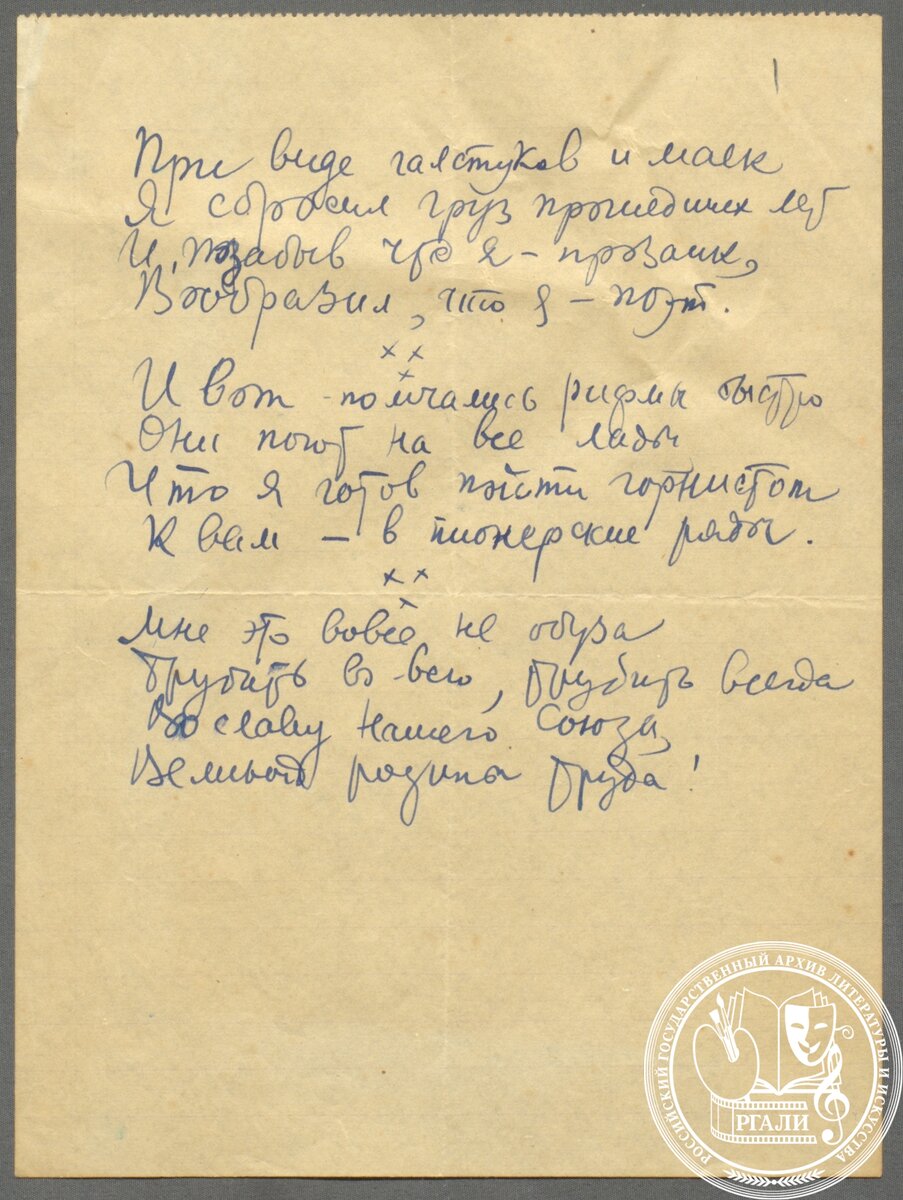 1
При виде галстуков и маек
Я сбросил груз прошедших лет
И, позабыв что я – прозаик,
Вообразил, что я – поэт.
× ×
×
И вот – помчались рифмы быстро
Они поют на все лады
Что я готов пойти горнистом
К вам – в пионерские ряды.
× ×
×
Мне это вовсе не обуза
Трубить во-всю, трубить всегда
Во славу нашего Союза,
Великой родины труда!
РОССИЙСКИЙ ГОСУДАРСТВЕННЫЙ АРХИВ ЛИТЕРАТУРЫ И ИСКУССТВА
РГАЛИ